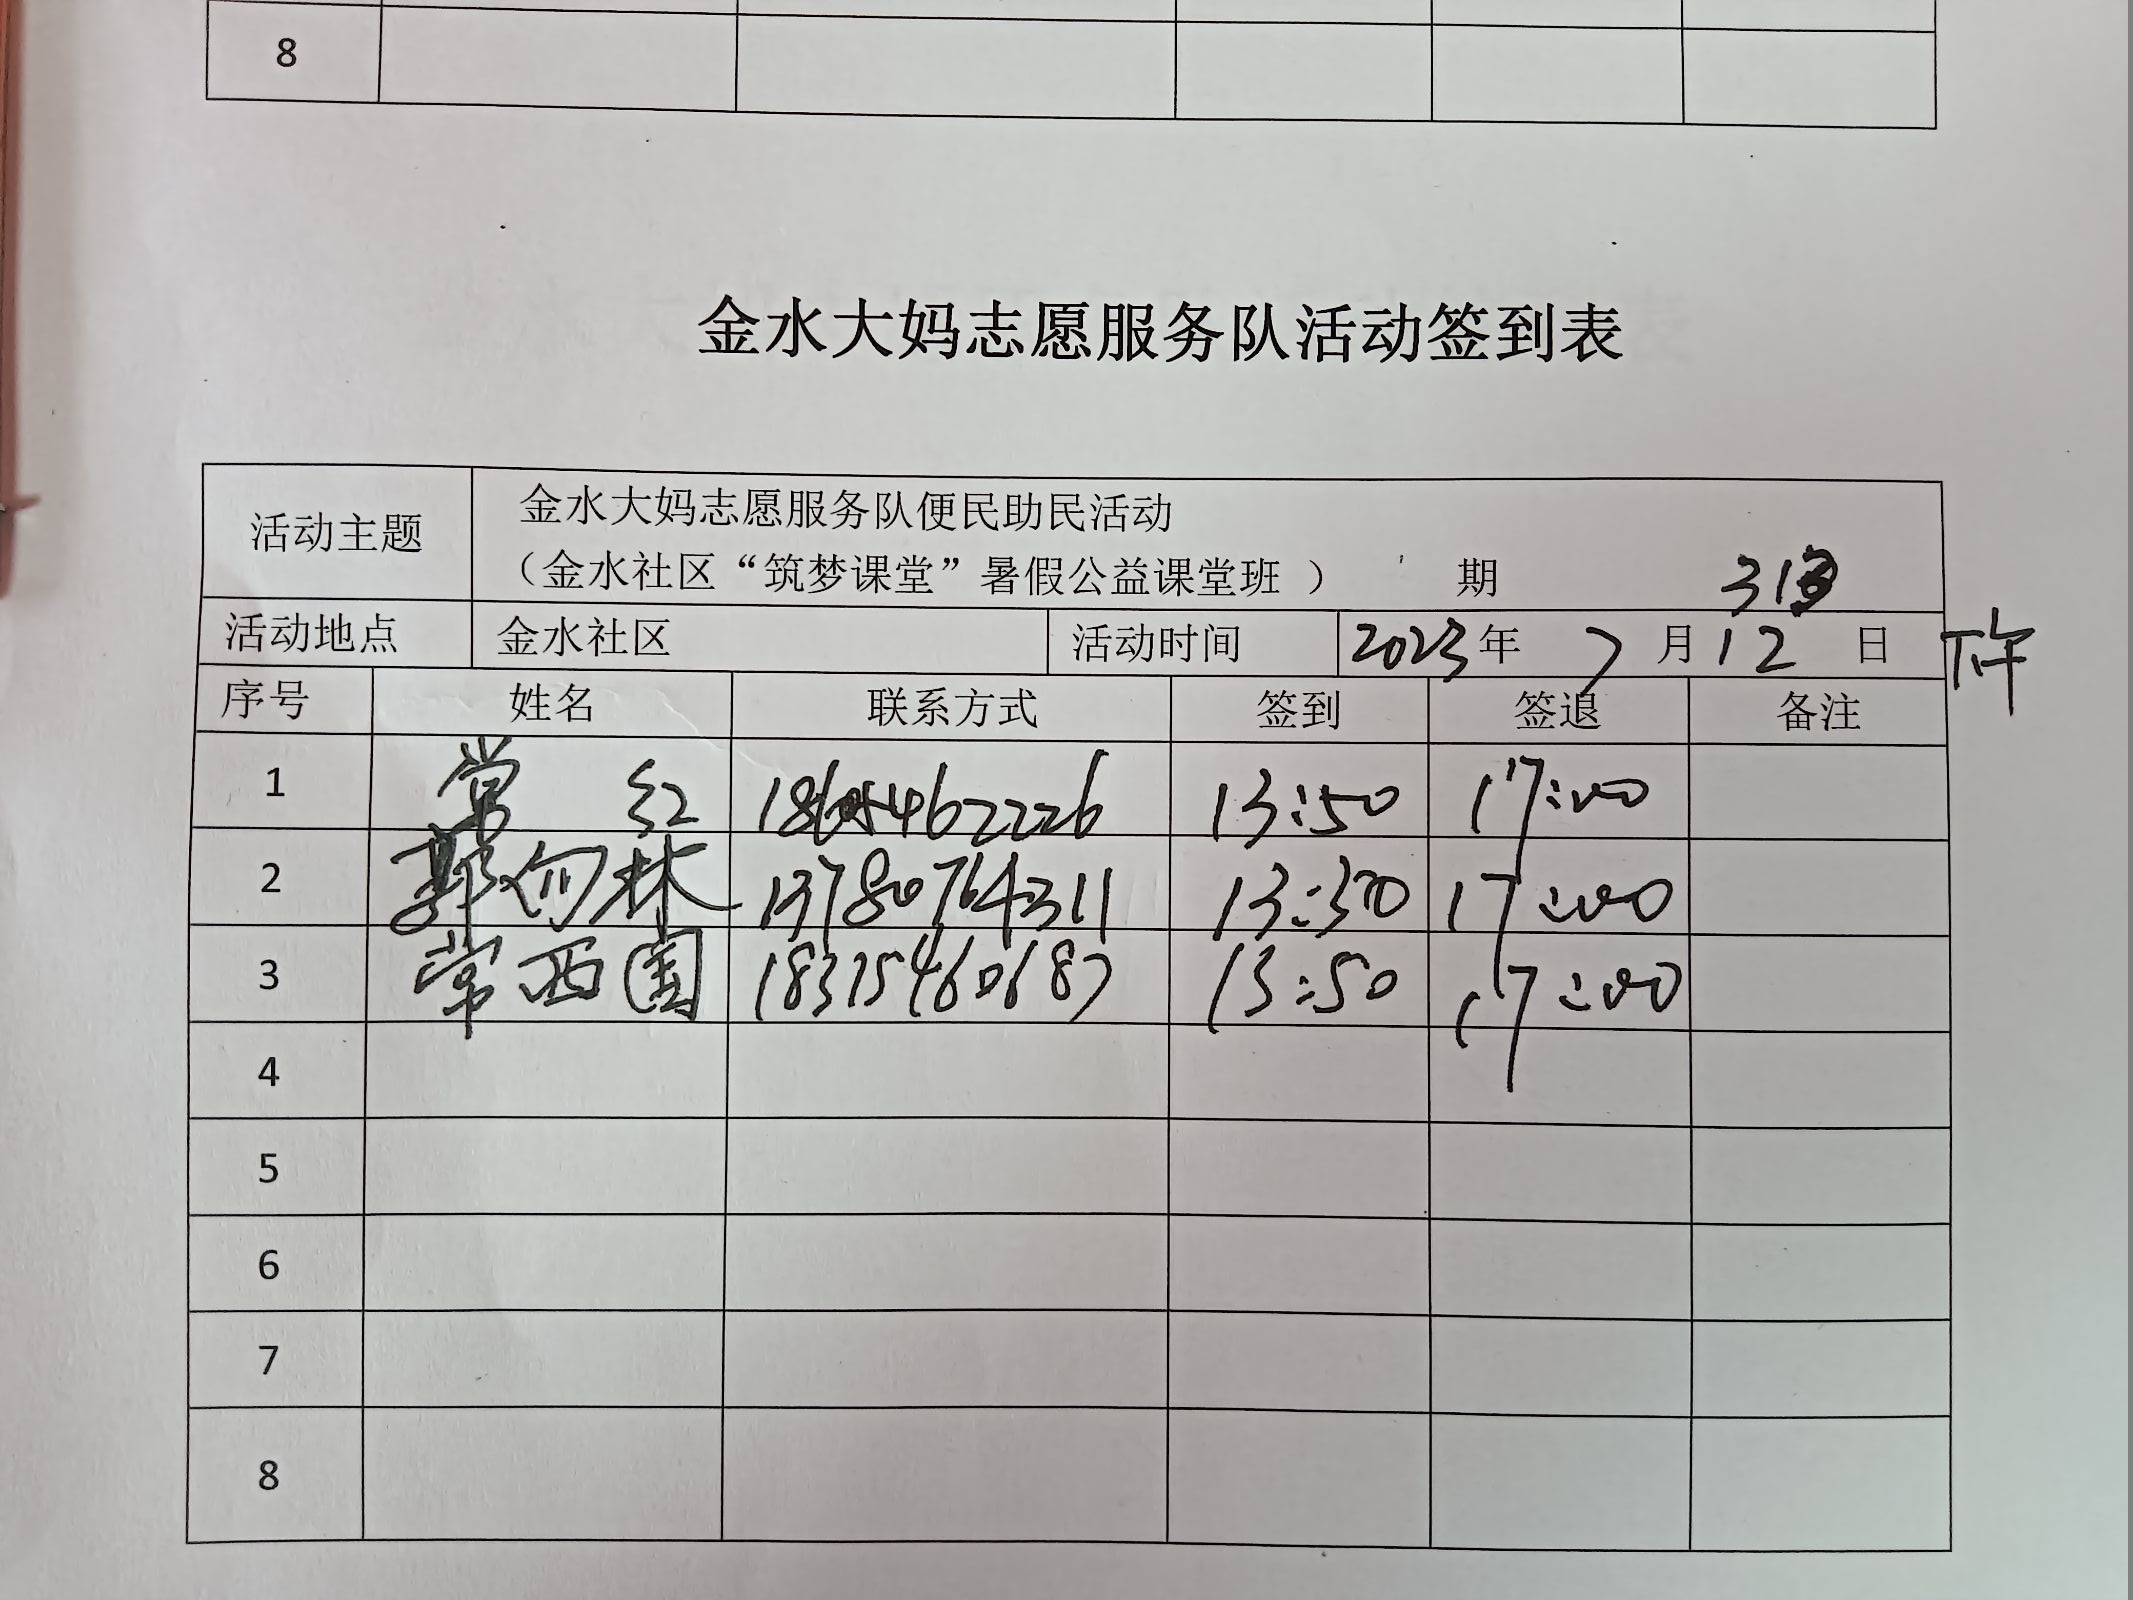 8
金水大妈志愿服务队活动签到表
活动主题
金水大妈志愿服务队便民助民活动
（金水社区“筑梦课堂”暑假公益课堂班 ） 期
活动地点 金水社区 活动时间 2023年 7 月 12 日 下午
序号 姓名 联系方式 签到 签退 备注
1 常 红 13:50 17:00
2 13780764311 17:00
3 常西国 18375460687 13:50 17:00
4
5
6
7
8